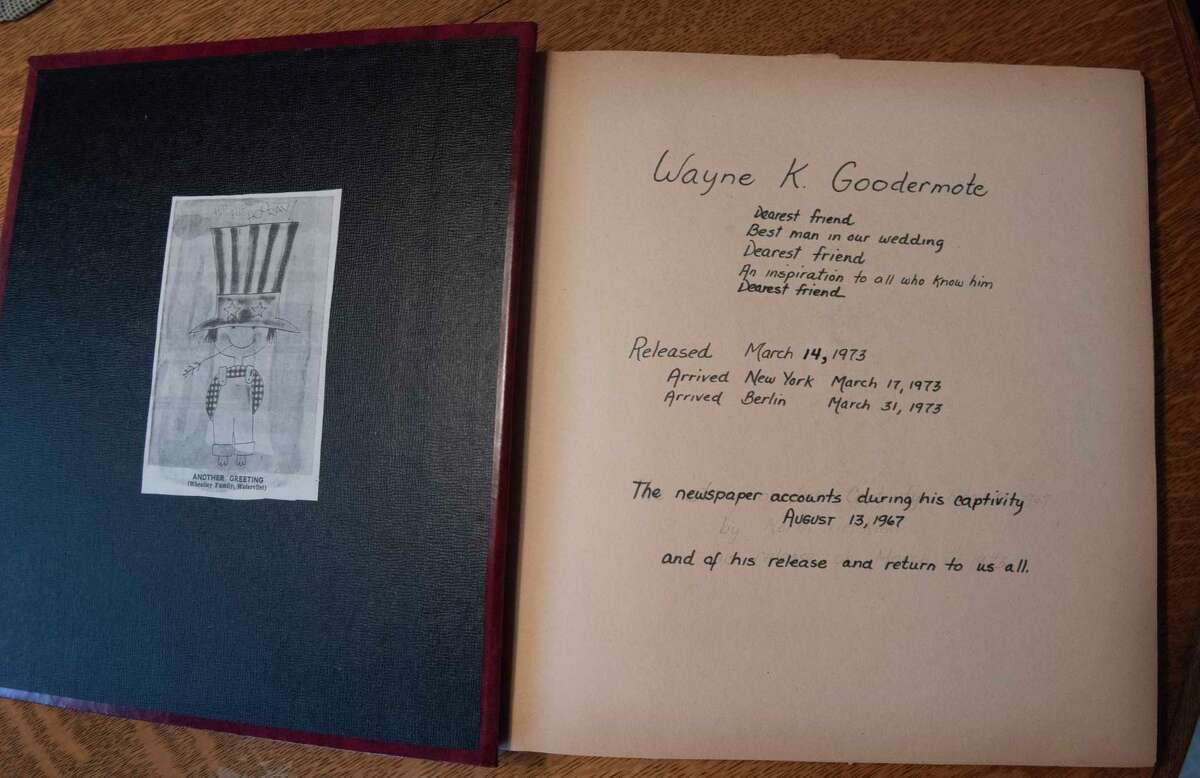 ANOTHER GREETING
(Wheeler Family, Watervliet)
Wayne K. Goodermote
Dearest friend
Best man in our wedding
Dearest friend
An inspiration to all who know him
Dearest friend
Released March 14, 1973
Arrived New York March 17, 1973
Arrived Berlin March 31, 1973
The newspaper accounts during his captivity
AUGUST 13, 1967
by
and of his release and return to us all.